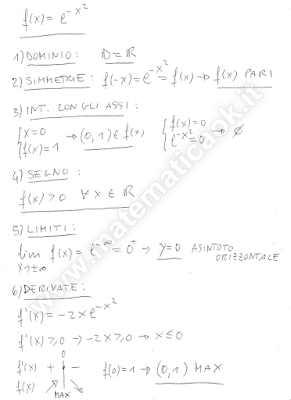 f(x) = e^-x²
1) DOMINIO : D = ℝ
2) SIMMETRIE : f(-x) = e^-x² = f(x) → f(x) PARI
3) INT. CON GLI ASSI :
{x=0 → (0,1) ∈ f(x) {f(x)=0 → ∅
{f(x)=1 {e^-x²=0
4) SEGNO :
f(x) > 0 ∀ x ∈ ℝ
5) LIMITI :
lim f(x) = e^-∞ = 0⁺ → y=0 ASINTOTO
x→±∞ ORIZZONTALE
6) DERIVATE :
f'(x) = -2x e^-x²
f'(x) ≥ 0 → -2x ≥ 0 → x ≤ 0
0
f'(x) + − f(0)=1 → (0,1) MAX
f(x)
MAX
www.matematicaok.it